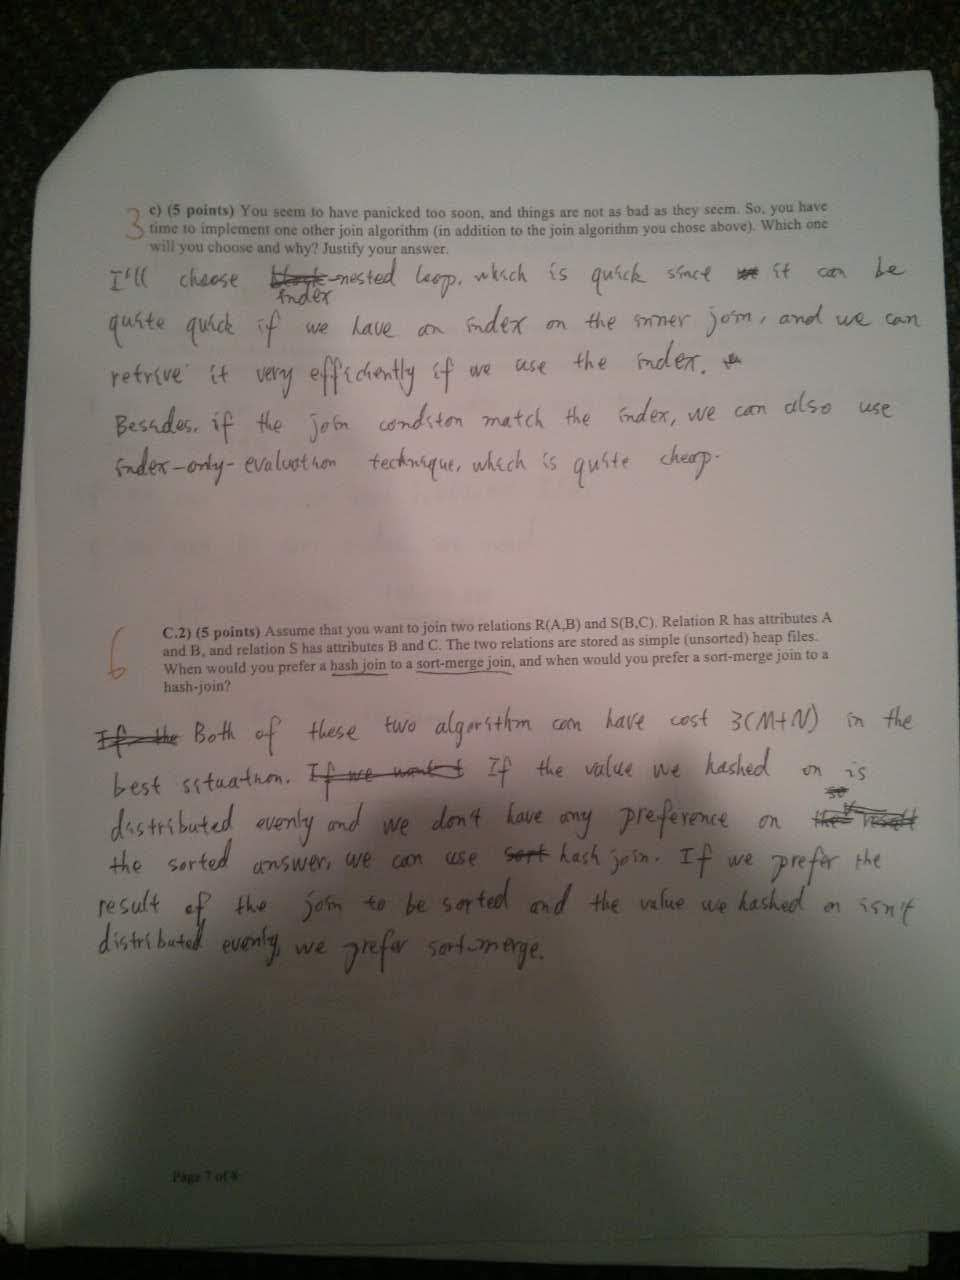 3 c) (5 points) You seem to have panicked too soon, and things are not as bad as they seem. So, you have
time to implement one other join algorithm (in addition to the join algorithm you chose above). Which one
will you choose and why? Justify your answer.
I'll choose block-nested loop, which is quick since it can be
index
quite quick if we have an index on the inner join, and we can
retrive it very efficiently if we use the index.
Besides, if the join conditon match the index, we can also use
index-only-evaluation technique, which is quite cheap.
6 C.2) (5 points) Assume that you want to join two relations R(A,B) and S(B,C). Relation R has attributes A
and B, and relation S has attributes B and C. The two relations are stored as simple (unsorted) heap files.
When would you prefer a hash join to a sort-merge join, and when would you prefer a sort-merge join to a
hash-join?
If the Both of these two algorithm can have cost 3(M+N) in the
best situation. If we want t If the value we hashed on is
so
distributed evenly and we don't have any preference on the result
the sorted answer, we can use sort hash join. If we prefer the
result of the join to be sorted and the value we hashed on isn't
distributed evenly, we prefer sort-merge.
Page 7 of 8